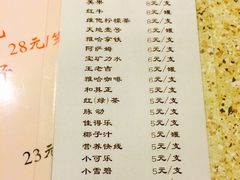 美果 6元/支
红牛 6元/罐
维他柠檬茶 6元/支
天地壹号 6元/罐
雅哈拿铁 6元/支
阿萨姆 6元/支
宝矿力水 6元/支
王老吉 6元/罐
雅哈咖啡 6元/支
和其正 5元/支
红(绿)茶 5元/支
脉动 5元/支
佳得乐 5元/支
椰子汁 5元/罐
营养快线 5元/支
小可乐 5元/支
小雪碧 5元/支
28元/
23元